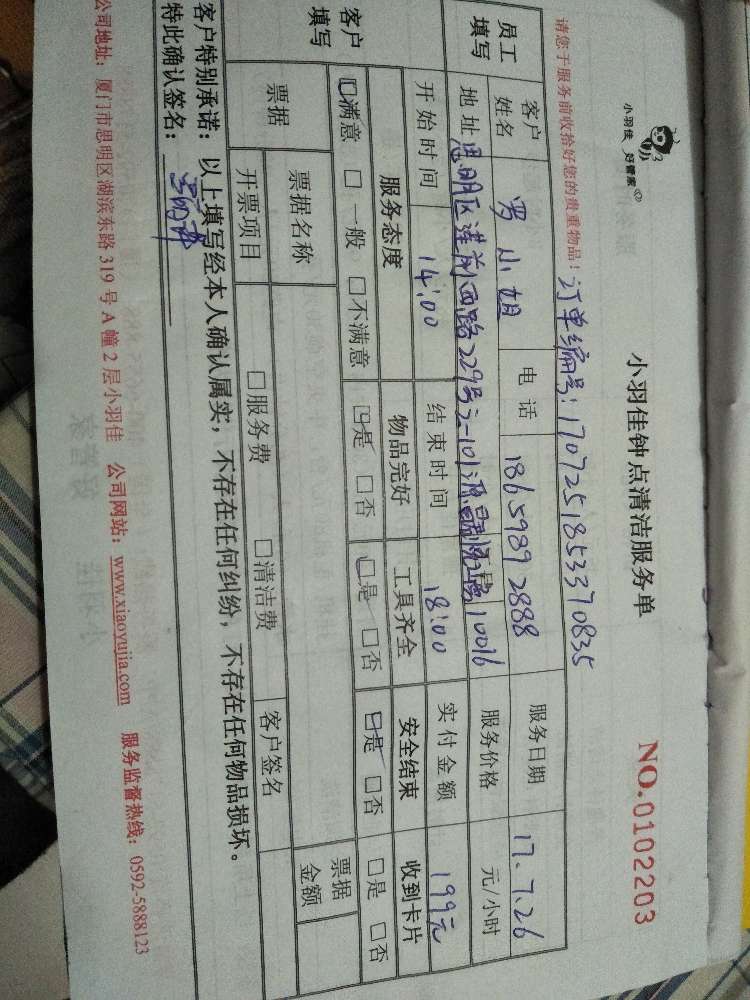 小羽佳 好管家
小羽佳钟点清洁服务单
NO.0102203
请您于服务前收拾好您的贵重物品！
订单编号：170725185337 0835
员工填写
客户姓名 罗小姐 电话 18659892888 服务日期 17.7.26
地址 思明区莲前西路229号之一101 10016 服务价格 元/小时
开始时间 14:00 结束时间 18:00 实付金额 199元
客户填写
服务态度 物品完好 工具齐全 安全结束 收到卡片
☑满意 □一般 □不满意 ☑是 □否 ☑是 □否 ☑是 □否 □是 □否
票据 票据名称 票据金额
开票项目 □服务费 □清洁费 客户签名
客户特别承诺：以上填写经本人确认属实，不存在任何纠纷，不存在任何物品损坏。
特此确认签名：
公司地址：厦门市思明区湖滨东路319号A幢2层小羽佳 公司网站：www.xiaoyujia.com 服务监督热线：0592-5888123